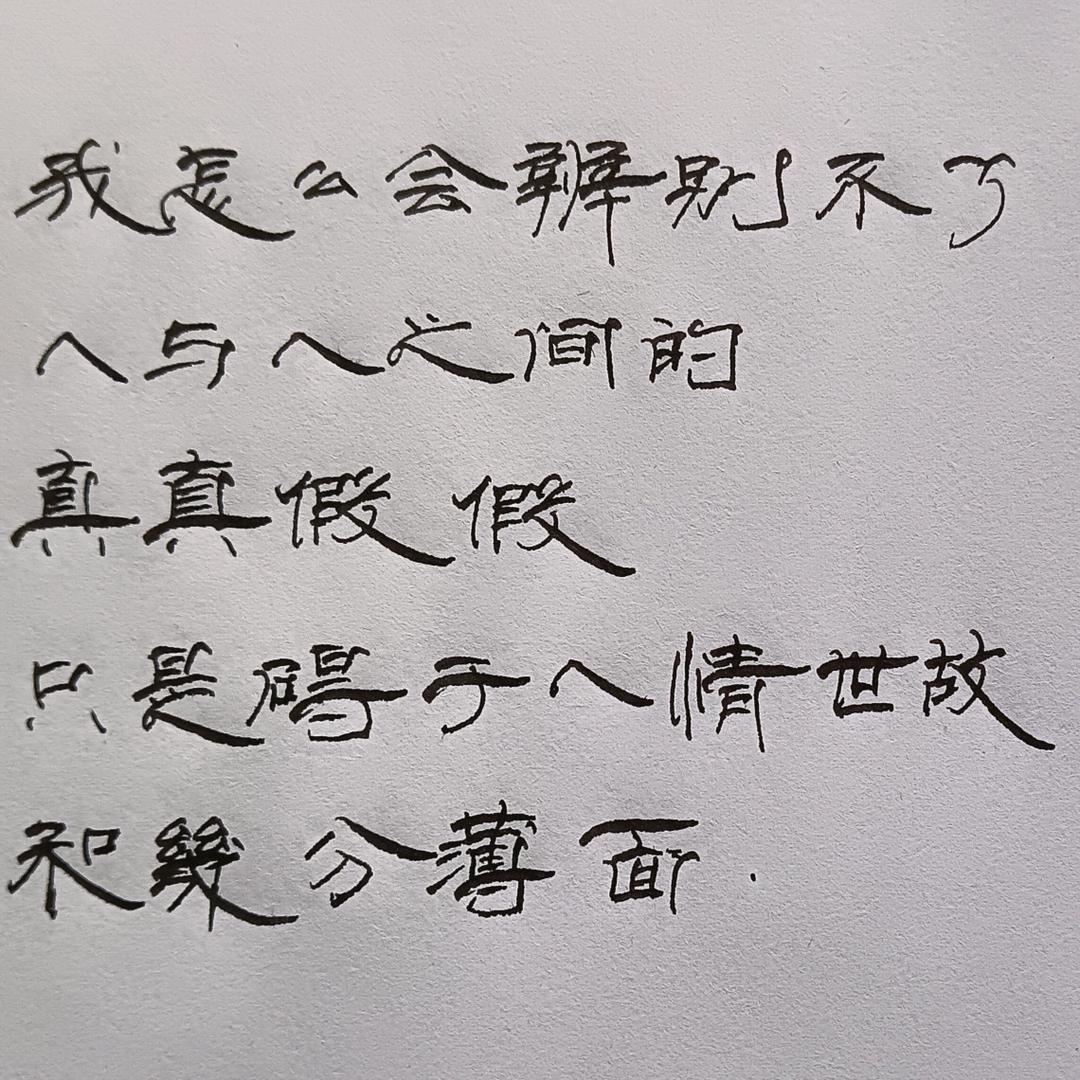 我怎么会辨别不了
人与人之间的
真真假假
只是碍于人情世故
和幾分薄面.